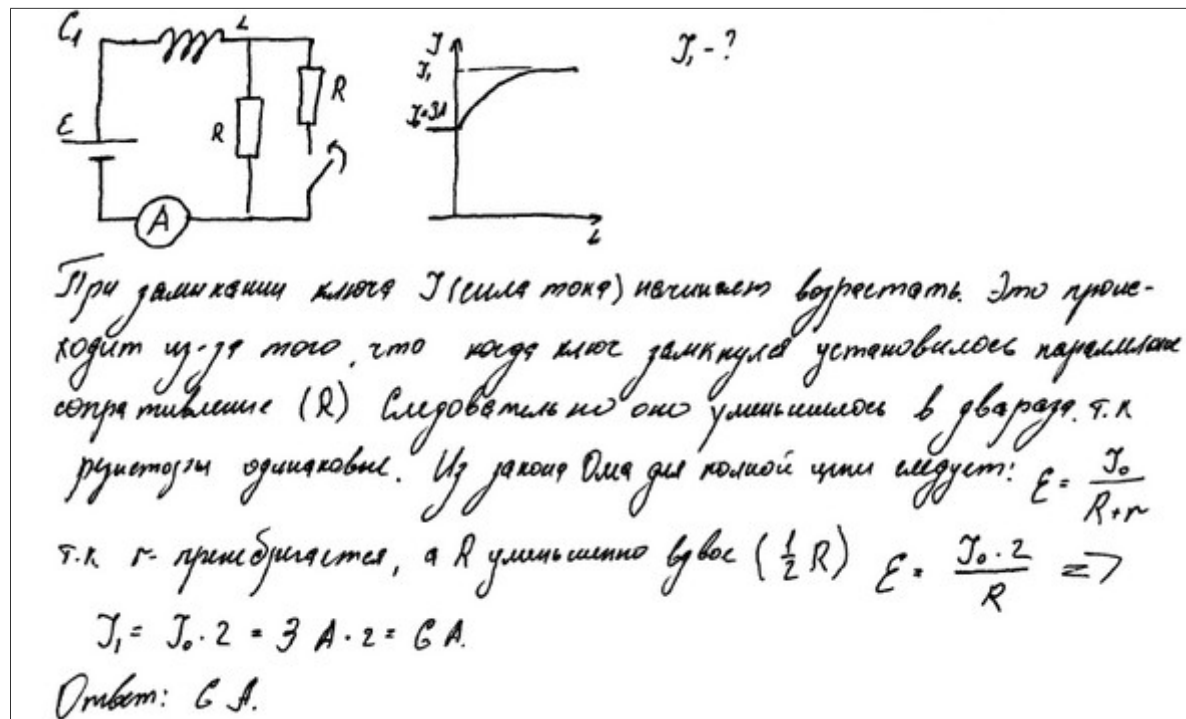 C1
L
R
R
ε
A
J
J₁
J₀=3A
t
J₁-?
При замикании ключа J (сила тока) начинает возрастать. Это проис-
ходит из-за того, что когда ключ замкнулся установилось
сопративление (R) Следовательно оно уменьшилось в два раза. т.к
резисторы одинаковые. Из закона Ома для полной цепи следует: ε = J₀/(R+r)
т.к r- принебригается, а R уменьшенно вдвое (1/2 R) ε = J₀·2/R =>
J₁ = J₀·2 = 3 A·2 = 6 A.
Ответ: 6 A.